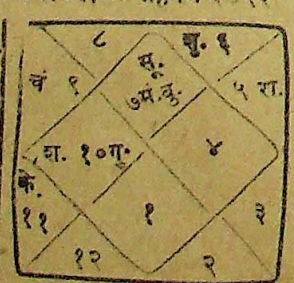 ८ शु. ६
सू.
चं ९ ७मं.बु. ५ रा.
श. १०गु. ४
के.
११ १ ३
१२ २